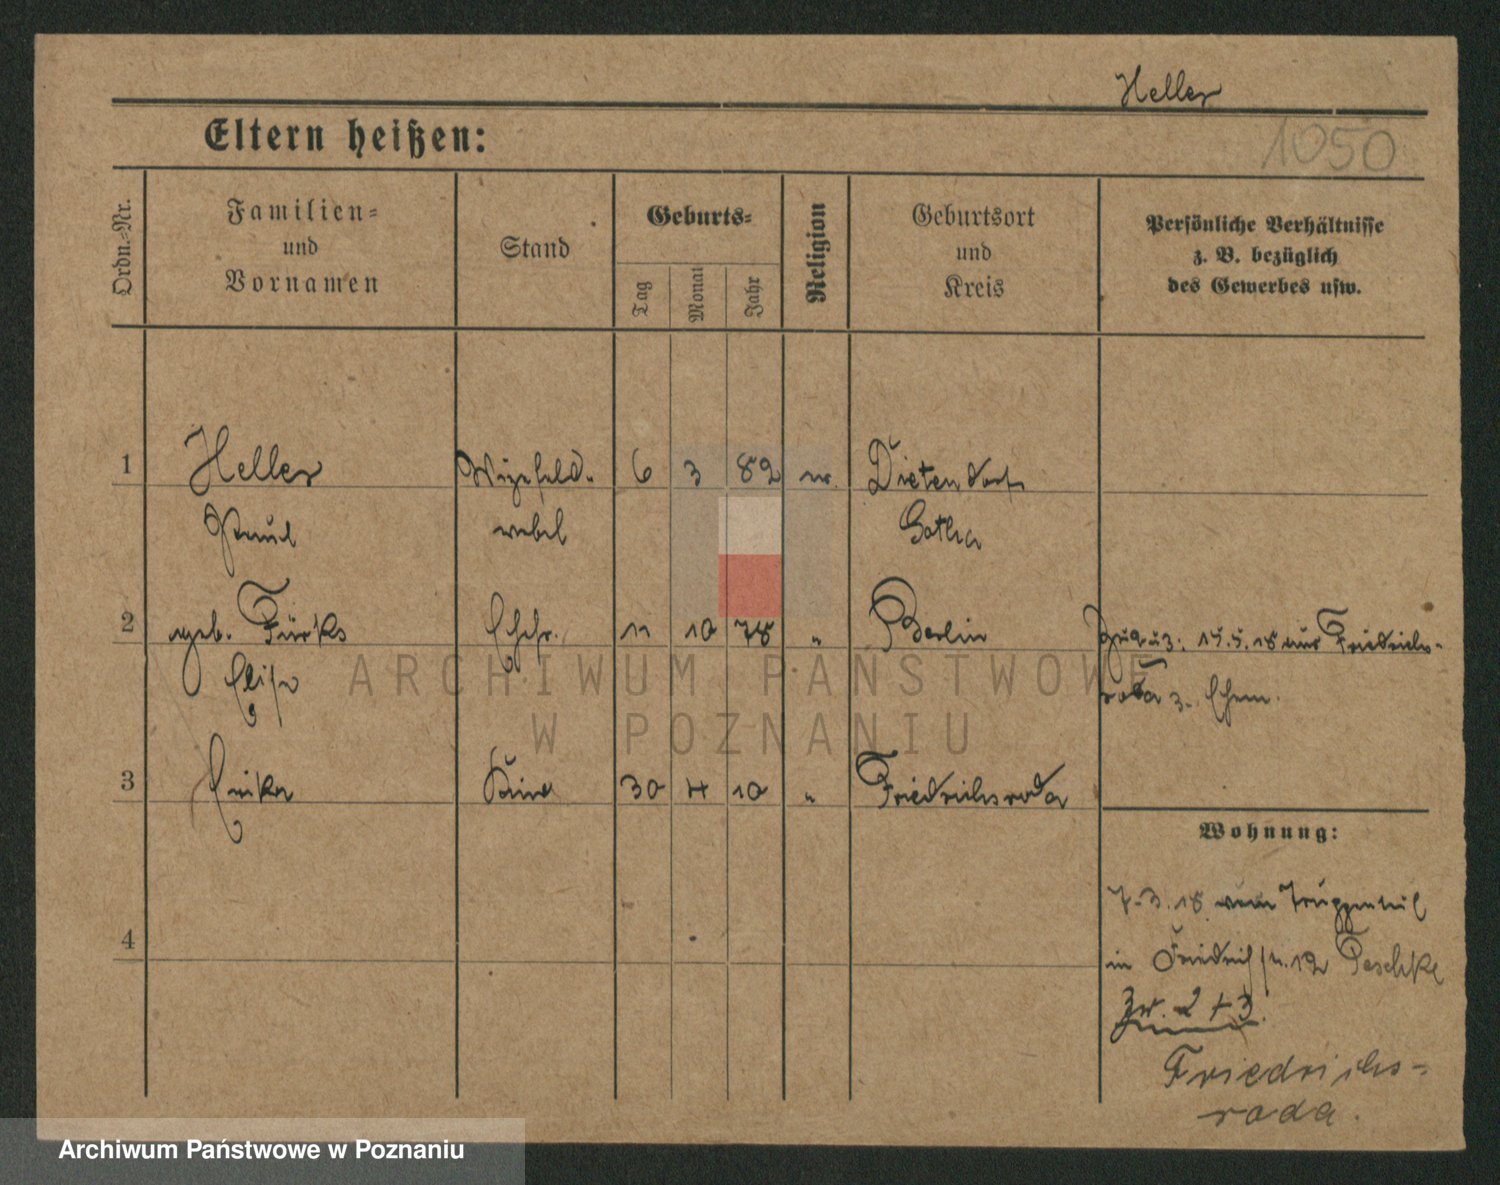 Heller
1050
Eltern heißen:
Ordn.-Nr.
Familien- und Vornamen
Stand
Geburts-
Tag
Monat
Jahr
Religion
Geburtsort und Kreis
Persönliche Verhältnisse
z. B. bezüglich
des Gewerbes usw.
1 Heller Vizefeld- 6 3 82 ev. Dietendorf
Paul webel Gotha
2 geb. Fürks Ehefr. 11 10 78 " Berlin Zuguz: 15.5.18 aus Friedrichs-
Elise roda z. Ehem.
ARCHIWUM PAŃSTWOWE
W POZNANIU
3 Erika Kind 30 4 10 " Friedrichsroda
Wohnung:
7.3.18 vom Truppenteil
4
in 12 Peschke
Zw. 2 + 3
Friedrichs-
roda.
Archiwum Państwowe w Poznaniu